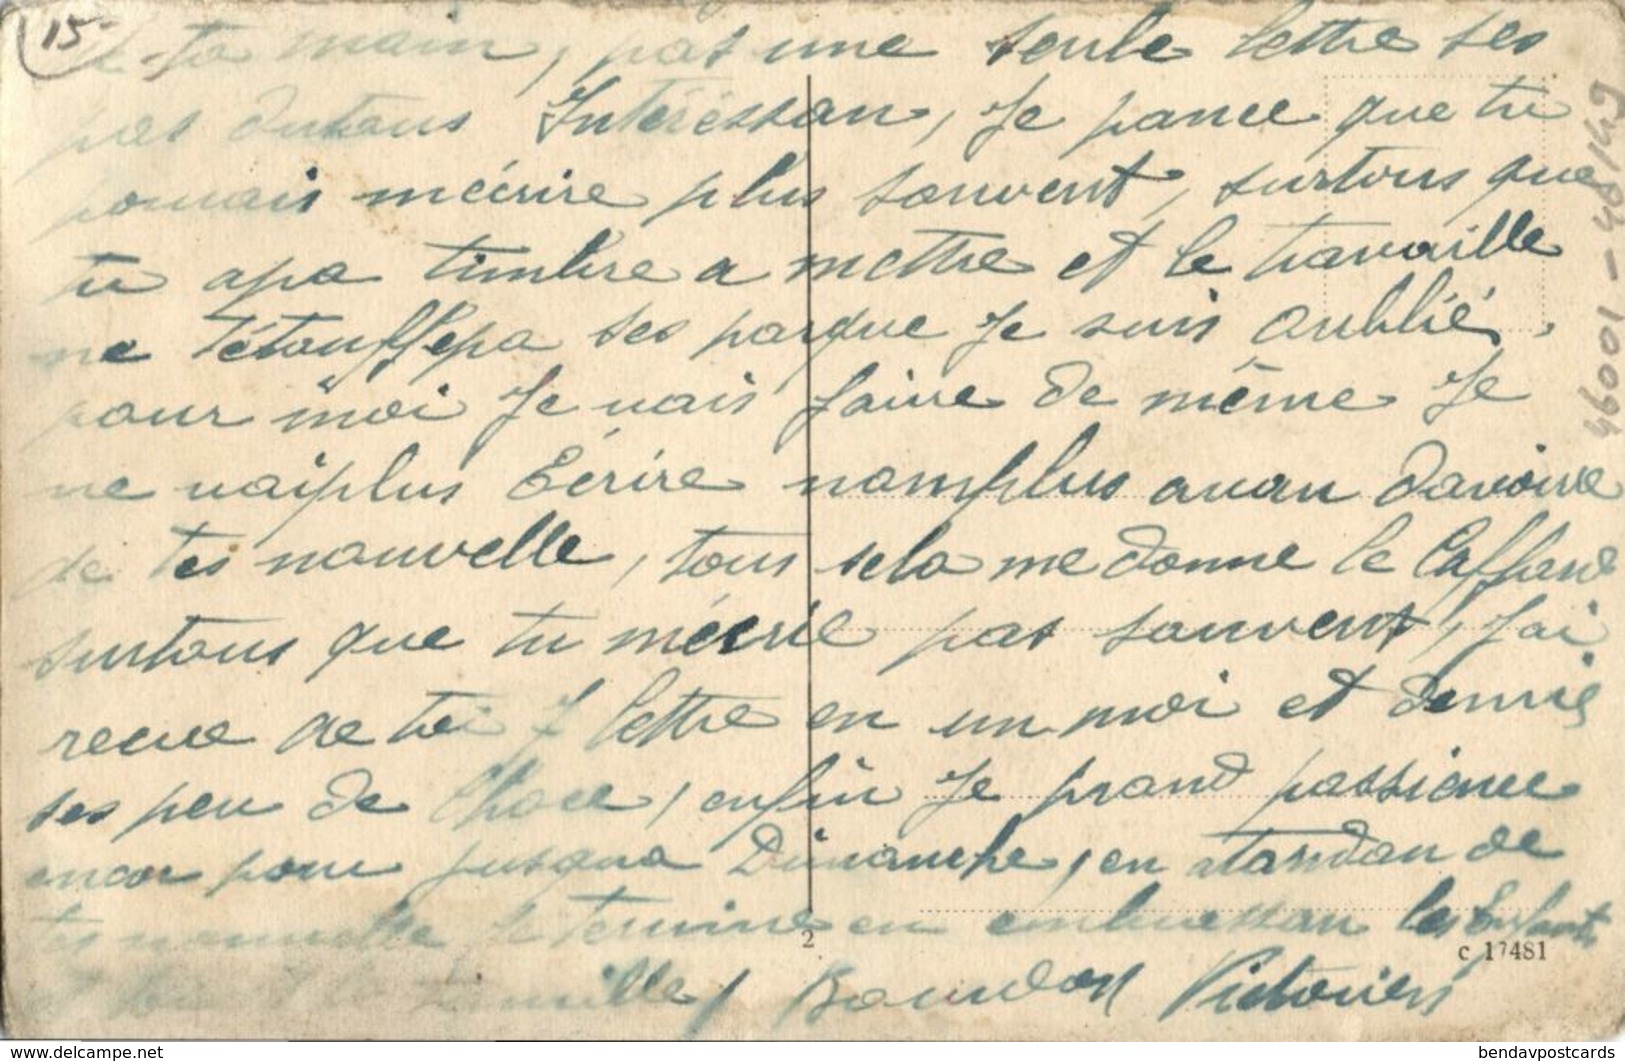 15
de ta main, pas une seule lettre ses
pas Intéréssan, Je pance que tu
pouvais mécirire plus souvent, surtous que
tu apa timbre a mettre et le travaille
ne tétouffepa ses parque Je suis oublié,
pour moi Je vais faire de même Je
ne vaiplus Ecrire nomplus avan davoire
de tes nouvelle, tous sela me donne le Caffare
surtous que tu mécrie pas souvent, Jai
recue de toi lettre en un moi et demie
ses peu de Chose, enfin Je prand passience
encor pour jusqua Dimanche, en atandan de
tes nouvelle Je termine en embressan les Enfants
et toi famille,
Victorien
2
c 17481
46001 - 48/49
bendavpostcards